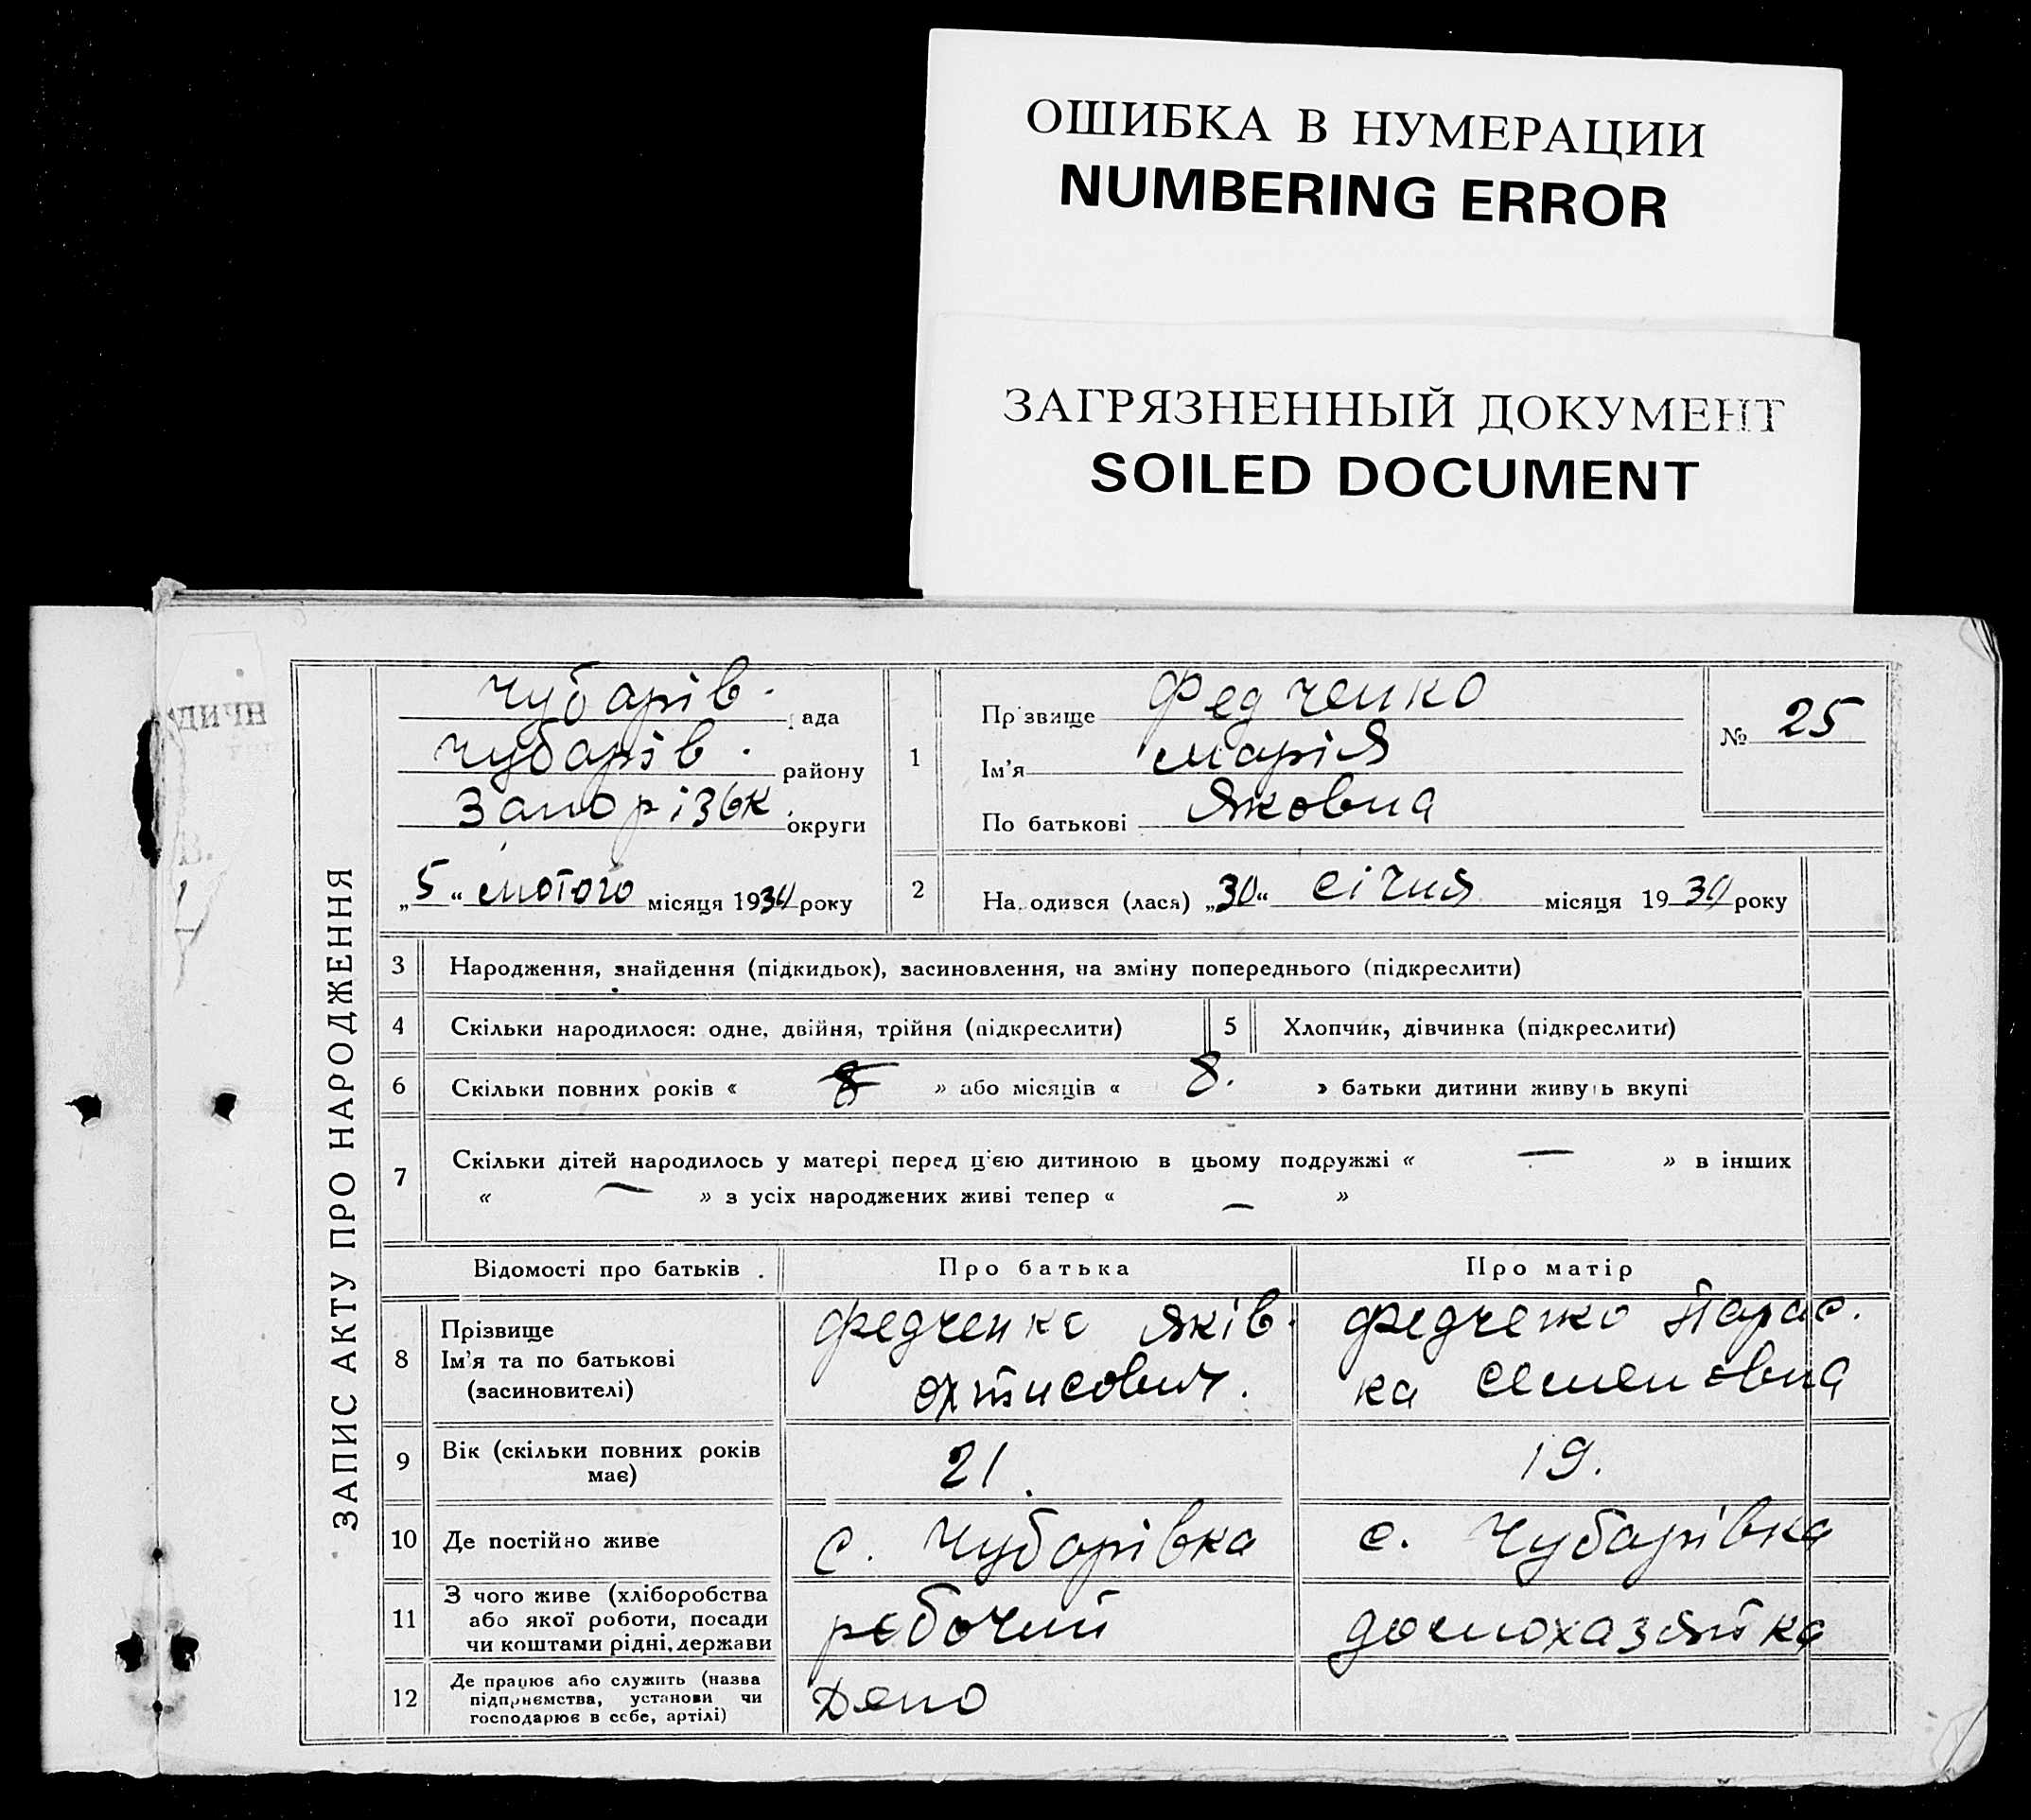 ОШИБКА В НУМЕРАЦИИ
NUMBERING ERROR
ЗАГРЯЗНЕННЫЙ ДОКУМЕНТ
SOILED DOCUMENT
ДИЧН
ЗАПИС АКТУ ПРО НАРОДЖЕННЯ
Чубарів. ада
Чубарів. району
Запорізьк. округи
„5“ лютого місяця 1934 року
1
Прізвище Федченко
Ім'я Марія
По батькові Яковна
№ 25
2 На одився (лася) „30“ січня місяця 1934 року
3 Народження, знайдення (підкидьок), засиновлення, на зміну попереднього (підкреслити)
4 Скільки народилося: одне, двійня, трійня (підкреслити) 5 Хлопчик, дівчинка (підкреслити)
6 Скільки повних років « 8 » або місяців « 8. » батьки дитини живуть вкупі
7 Скільки дітей народилось у матері перед цією дитиною в цьому подружжі « — » в інших
« — » з усіх народжених живі тепер « — »
Відомості про батьків. Про батька Про матір
8 Прізвище
Ім'я та по батькові
(засиновителі)
Федченко Яків.
Федченко Парас.
ка Семеновна
9 Вік (скільки повних років
має)
21. 19.
10 Де постійно живе с. Чубарівка с. Чубарівка
11 З чого живе (хліборобства
або якої роботи, посади
чи коштами рідні, держави
робочий домохазяйка
12 Де працює або служить (назва
підприємства, установи чи
господарює в себе, артілі)
Депо